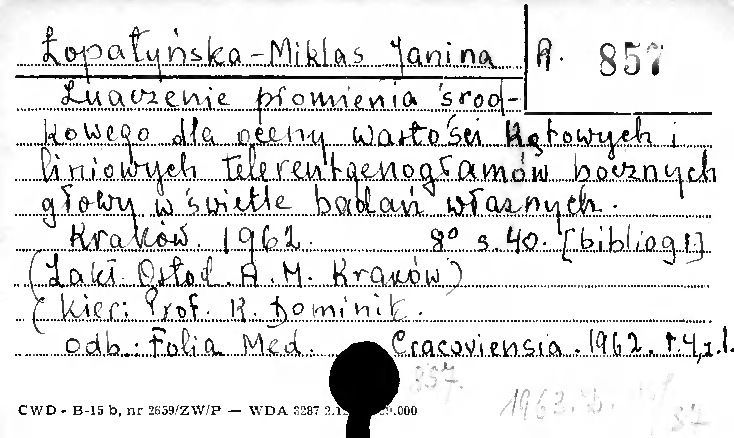 Łopatyńska-Miklas Janina A. 857
Znaczenie promienia środ-
kowego dla oceny wartości kątowych i
liniowych telerentgenogramów bocznych
głowy w świetle badań własnych.
Kraków. 1962. 8° s. 40. [bibliogr.]
(Zakł. Ortod. A. M. Kraków)
(Kier: Prof. K. Dominik.
odb: Folia Med. Cracoviensia. 1962. t.4, z.1.
857.
CWD - B-15 b, nr 2659/ZW/P — WDA 3287 .000
1963